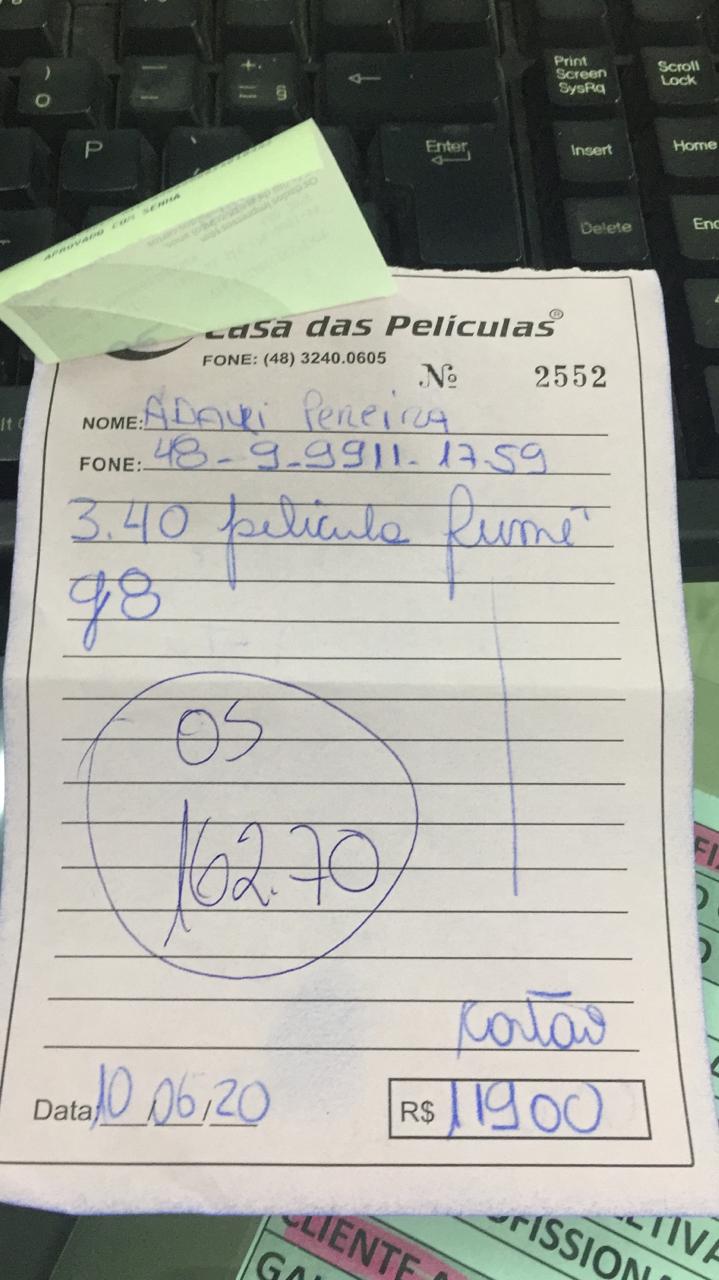 )
0
+
=
§
P
Enter
Print
Screen
SysRq
Scroll
Lock
Insert
Home
Delete
APROVADO COM SENHA
Casa das Películas®
FONE: (48) 3240.0605
Nº 2552
NOME: ADAURI PEREIRA
FONE: 48-9-9911-1759
3.40 película fumê
g8
OS
162.70
Kartão
Data 10/06/20
R$ 11900
CLIENTE